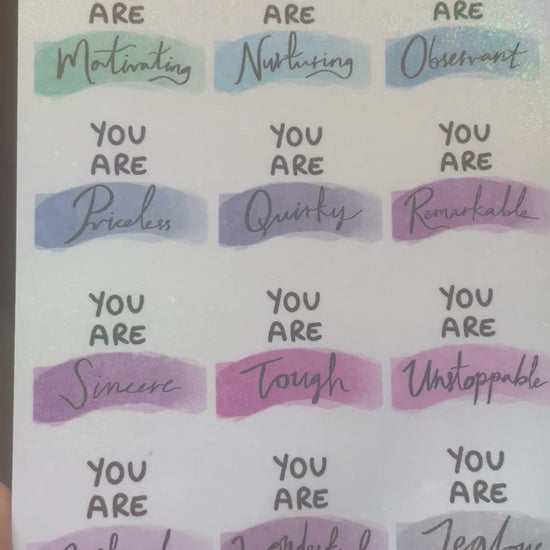 ARE ARE ARE
Motivating Nurturing Observant
YOU YOU YOU
ARE ARE ARE
Priceless Quirky Remarkable
YOU YOU YOU
ARE ARE ARE
Sincere Tough Unstoppable
YOU YOU YOU
ARE ARE ARE
Wonderful Zealous